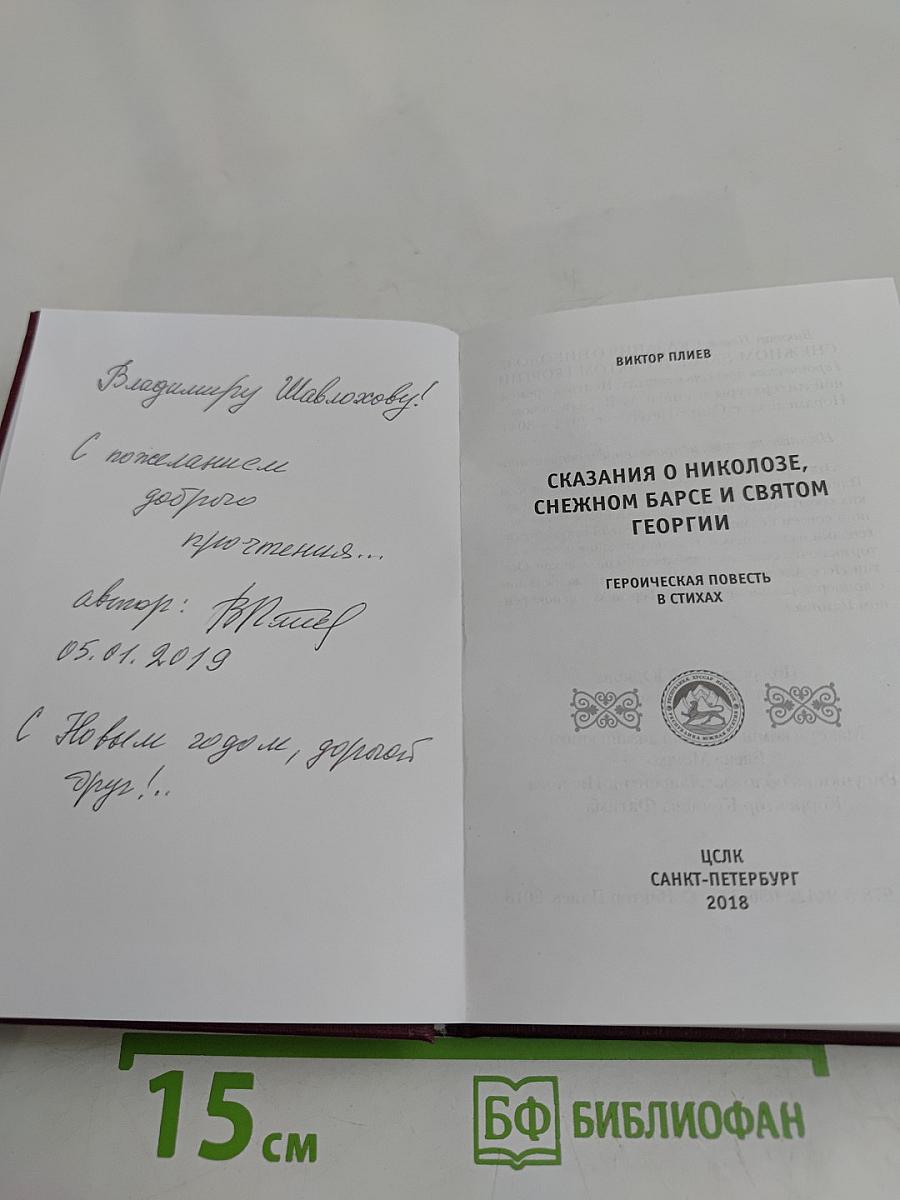 Владимиру Шавлохову!
С пожеланием
доброго
прочтения...
автор:
05.01.2019
С Новым годом, дорогой
друг!..
ВИКТОР ПЛИЕВ
СКАЗАНИЯ О НИКОЛОЗЕ,
СНЕЖНОМ БАРСЕ И СВЯТОМ
ГЕОРГИИ
ГЕРОИЧЕСКАЯ ПОВЕСТЬ
В СТИХАХ
ЦСЛК
САНКТ-ПЕТЕРБУРГ
2018
15 см
БФ БИБЛИОФАН